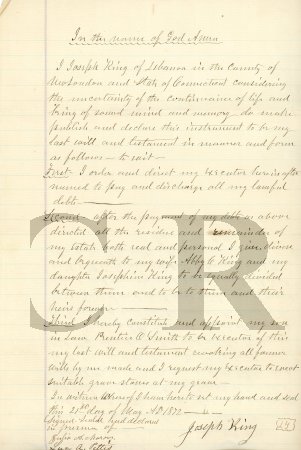 In the name of God Amen
I Joseph King of Lebanon in the County of
New London and State of Connecticut considering
the uncertainty of the continuance of life and
being of sound mind and memory do make
publish and declare this instrument to be my
last will and testament in manner and form
as follows - to wit -
First I order and direct my Executor hereinafter
named to pay and discharge all my lawful
debts -
Second after the payment of my debts as above
directed all the residue and remainder of
my Estate both real and personal I give devise
and bequeath to my wife Abby King and my
daughter Josephine King to be equally divided
between them and to be to them and their
heirs forever
Third I hereby constitute and appoint my son
in Law Prentice O Smith to be executor of this
my last will and testament revoking all former
wills by me made and I request my executor to erect
suitable grave stones at my grave -
In witness whereof I have hereto set my hand and seal
this 21st day of May AD 1872 -
Signed sealed and declared
in presence of
Joseph King
CK